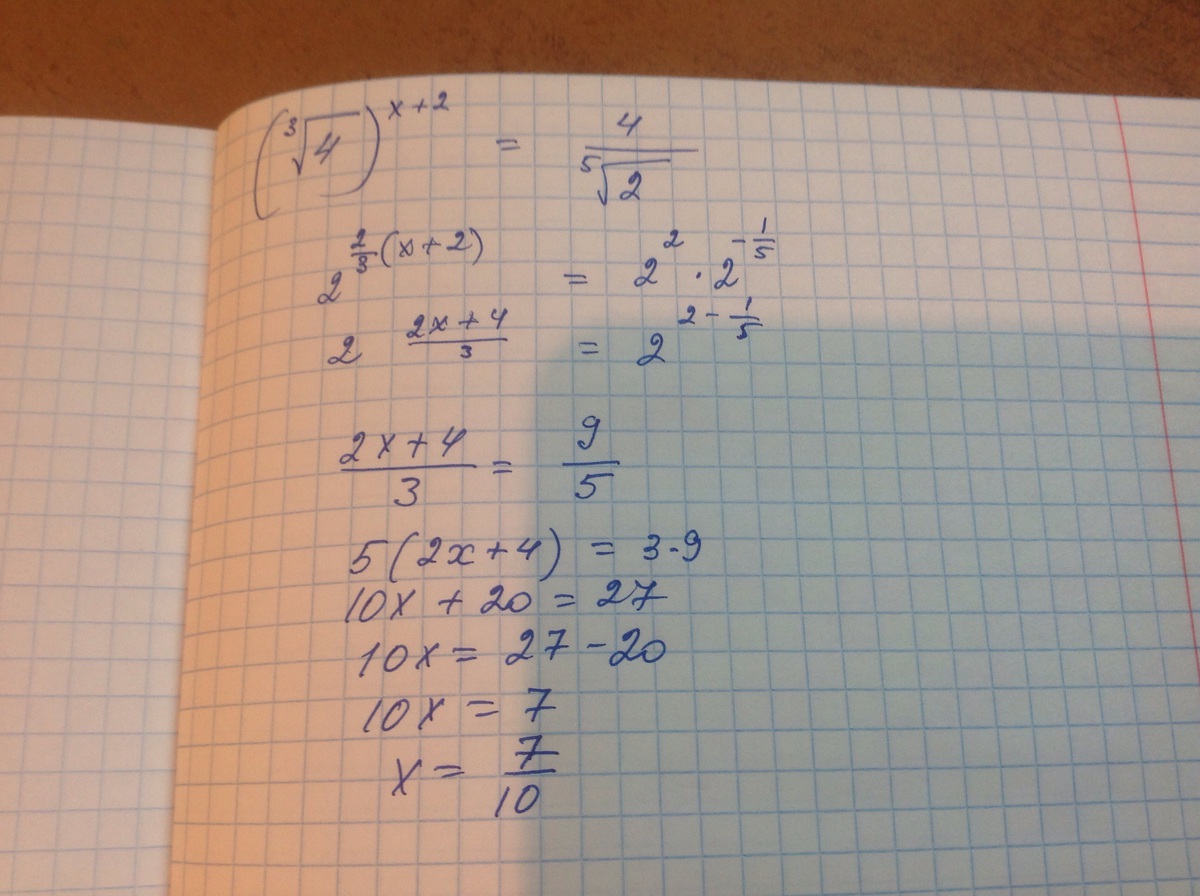 (∛4)^(x+2) = 4/⁵√2
2^(2/3·(x+2)) = 2^2 · 2^(-1/5)
2^((2x+4)/3) = 2^(2-1/5)
(2x+4)/3 = 9/5
5(2x+4) = 3·9
10x + 20 = 27
10x = 27-20
10x = 7
x = 7/10